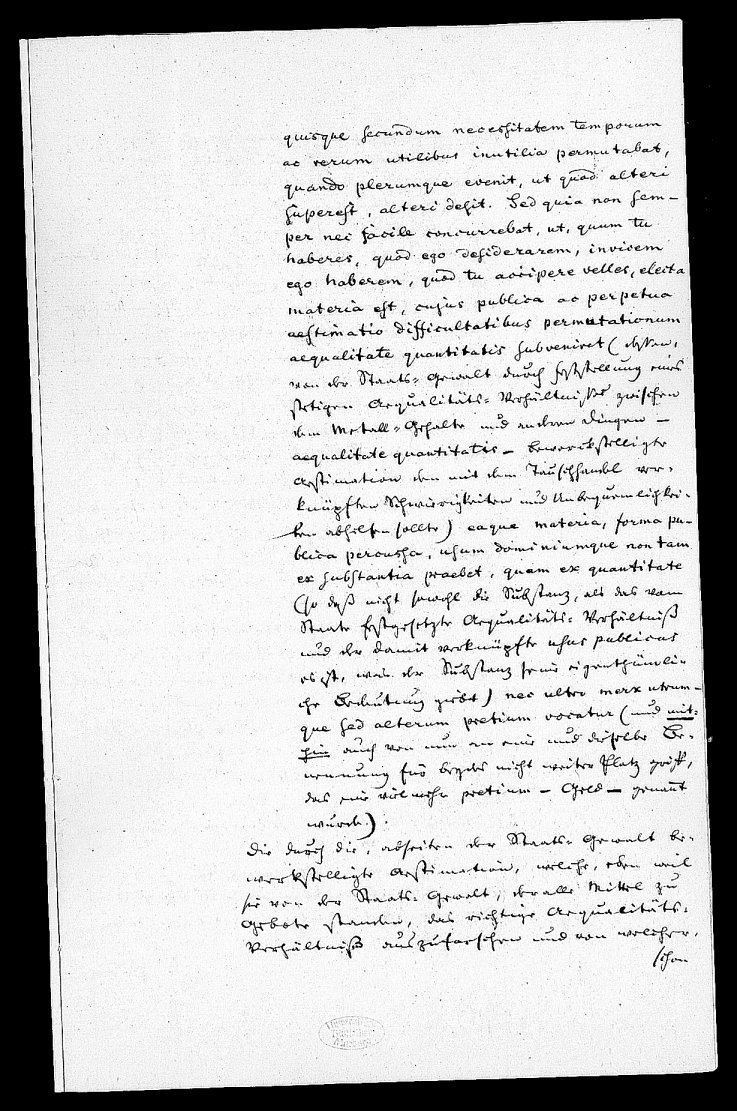 quisque secundum necessitatem temporum
ac rerum utilibus inutilia permutabat,
quando plerumque evenit, ut quod alteri
superest, alteri desit. Sed quia non sem-
per nec facile concurrebat, ut, quum tu
haberes, quod ego desiderarem, invicem
ego haberem, quod tu accipere velles, electa
materia est, cujus publica ac perpetua
aestimatio difficultatibus permutationum
aequalitate quantitatis subveniret (dessen,
von der Staats-Gewalt durch Feststellung eines
stetigen Aequalitäts-Verhältnisses zwischen
dem Metall-Gehalte und anderen Dingen –
aequalitate quantitatis – bewerckstelligte
Aestimation den mit dem Tauschhandel ver-
knüpften Schwierigkeiten und Unbequemlichkei-
ten abhelfen sollte) eaque materia, forma pu-
blica percussa, usum dominiumque non tam
ex substantia praebet, quam ex quantitate
(so daß nicht sowohl die Substanz, als das vom
Staate festgesetzte Aequalitäts-Verhältniß
und der damit verknüpfte usus publicus
es ist, was der Substanz seine eigenthümli-
che Bedeutung giebt) nec ultro merx utrum-
que sed alterum pretium vocatur (und mit-
hin auch von nun an eine und dieselbe Be-
nennung für beydes nicht weiter Platz griff,
das eine vielmehr pretium – Geld – genannt
wurde.)
Die durch die, abseiten der Staats-Gewalt be-
werkstelligte Aestimation, welche, eben weil
sie von der Staats-Gewalt, der alle Mittel zu
Gebote standen, das richtige Aequalitäts-
Verhältniß auszuforschen und von welcher,
schon